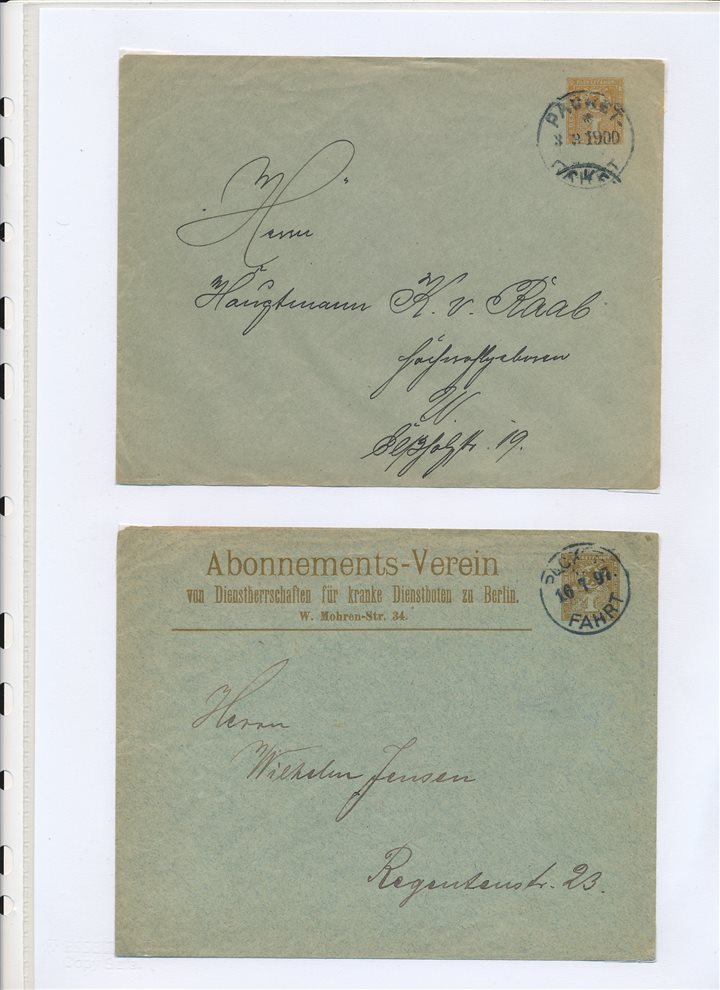 PACKET-
3 2 1900
"H"
Herrn
Hauptmann K. v. Raab
Hochwohlgeboren
W
19.
Abonnements-Verein
von Dienstherrschaften für kranke Dienstboten zu Berlin.
W. Mohren-Str. 34.
16 7 97.
FAHRT
Herrn
Wilhelm Jensen
Regentenstr. 23.